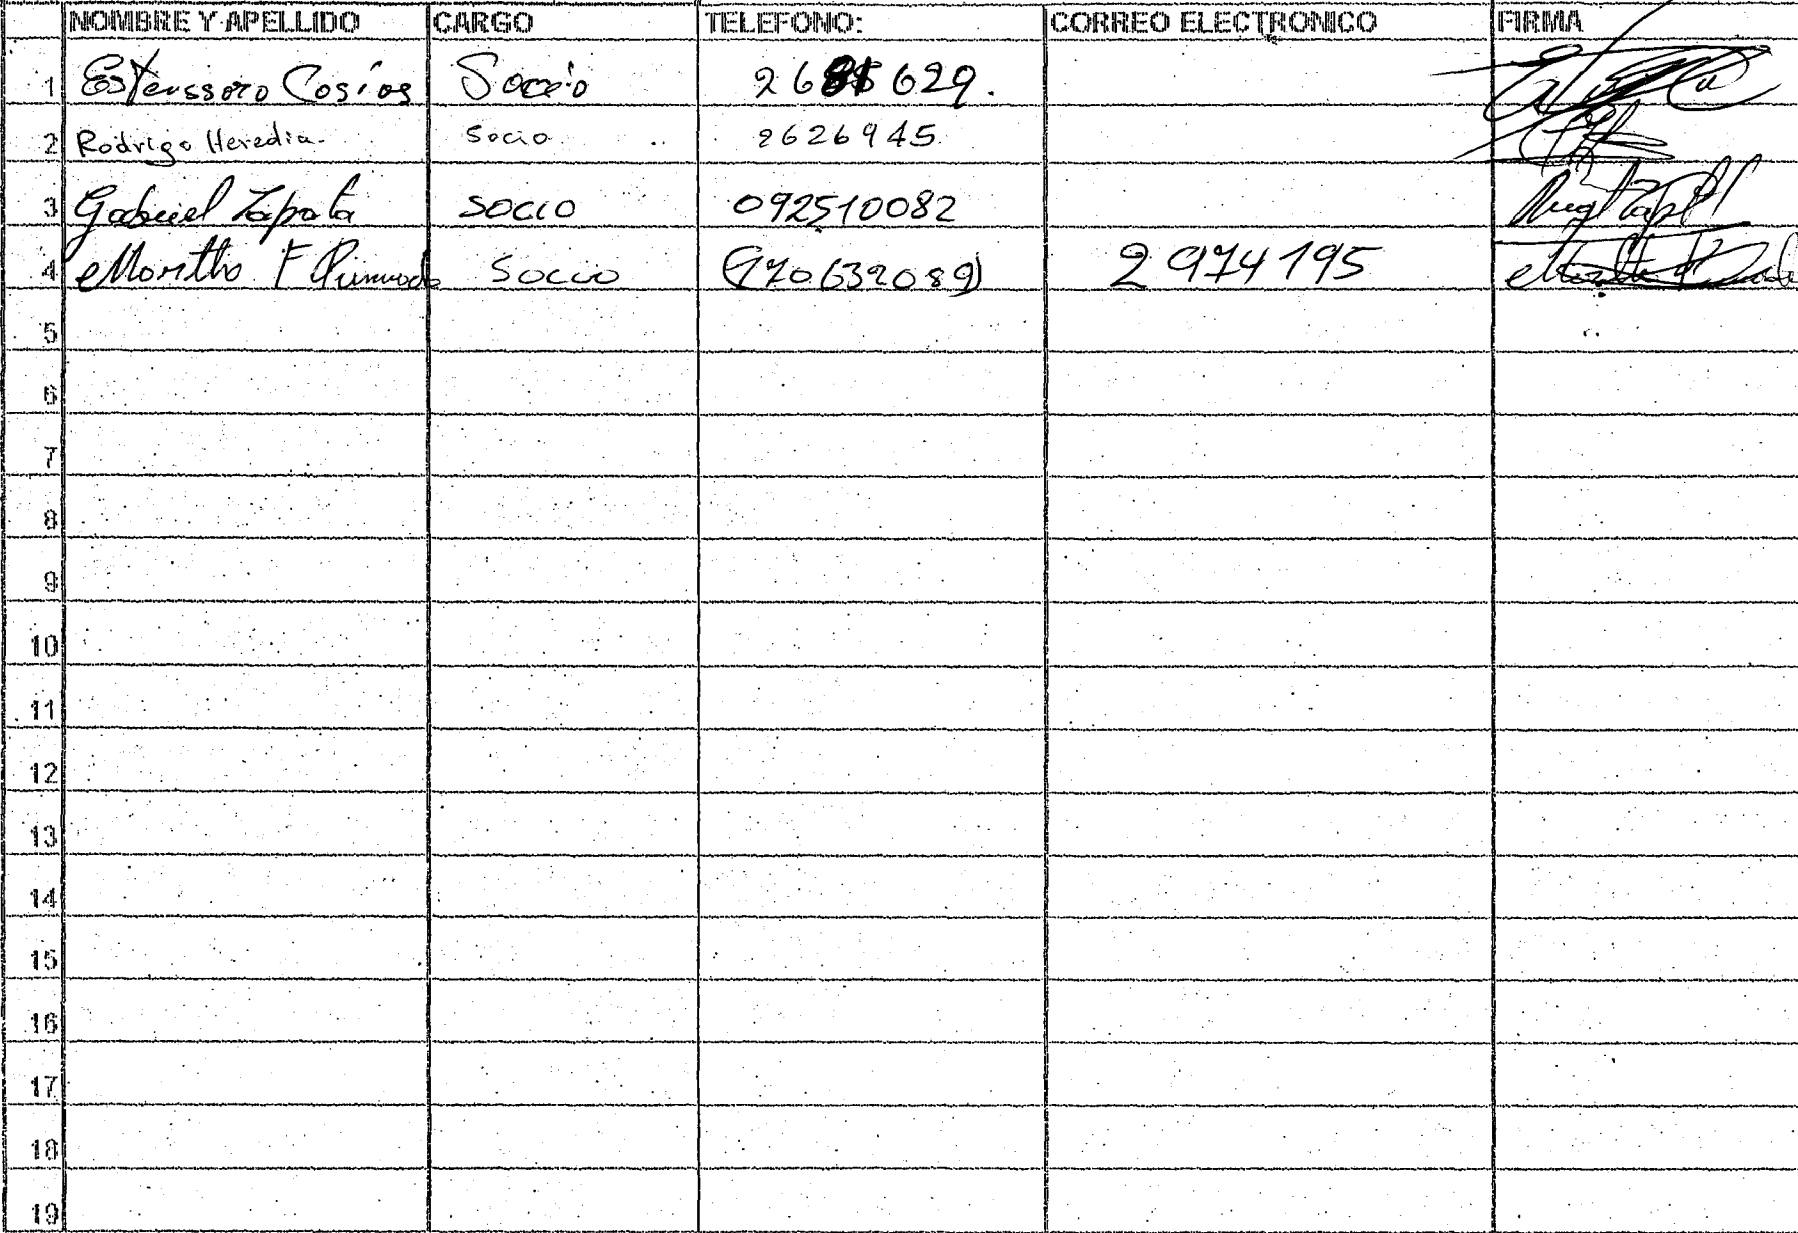 NOMBRE Y APELLIDO CARGO TELEFONO: CORREO ELECTRONICO FIRMA
1 Socio
2 Rodrigo Heredia. Socio 2626945
3 Gabriel Zapata SOCIO 092510082
4 Socio (170632089) 2974195
5
6
7
8
9
10
11
12
13
14
15
16
17
18
19